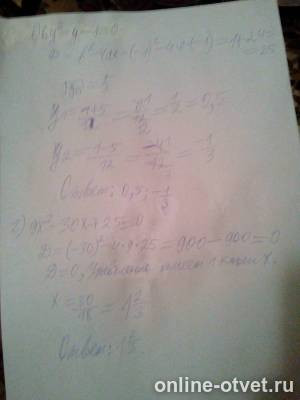 1) 6y² - y - 1 = 0
D = b² - 4ac = (-1)² - 4·6·(-1) = 1 + 24 =
= 25
√D = 5
y₁ = (1+5)/12 = 6/12 = 1/2 = 0,5
y₂ = (1-5)/12 = -4/12 = -1/3
Ответ: 0,5; -1/3
2) 9x² - 30x + 25 = 0
D = (-30)² - 4·9·25 = 900 - 900 = 0
D = 0, имеет 1 корень x.
x = 30/18 = 1 2/3
Ответ: 1 2/3
online-otvet.ru